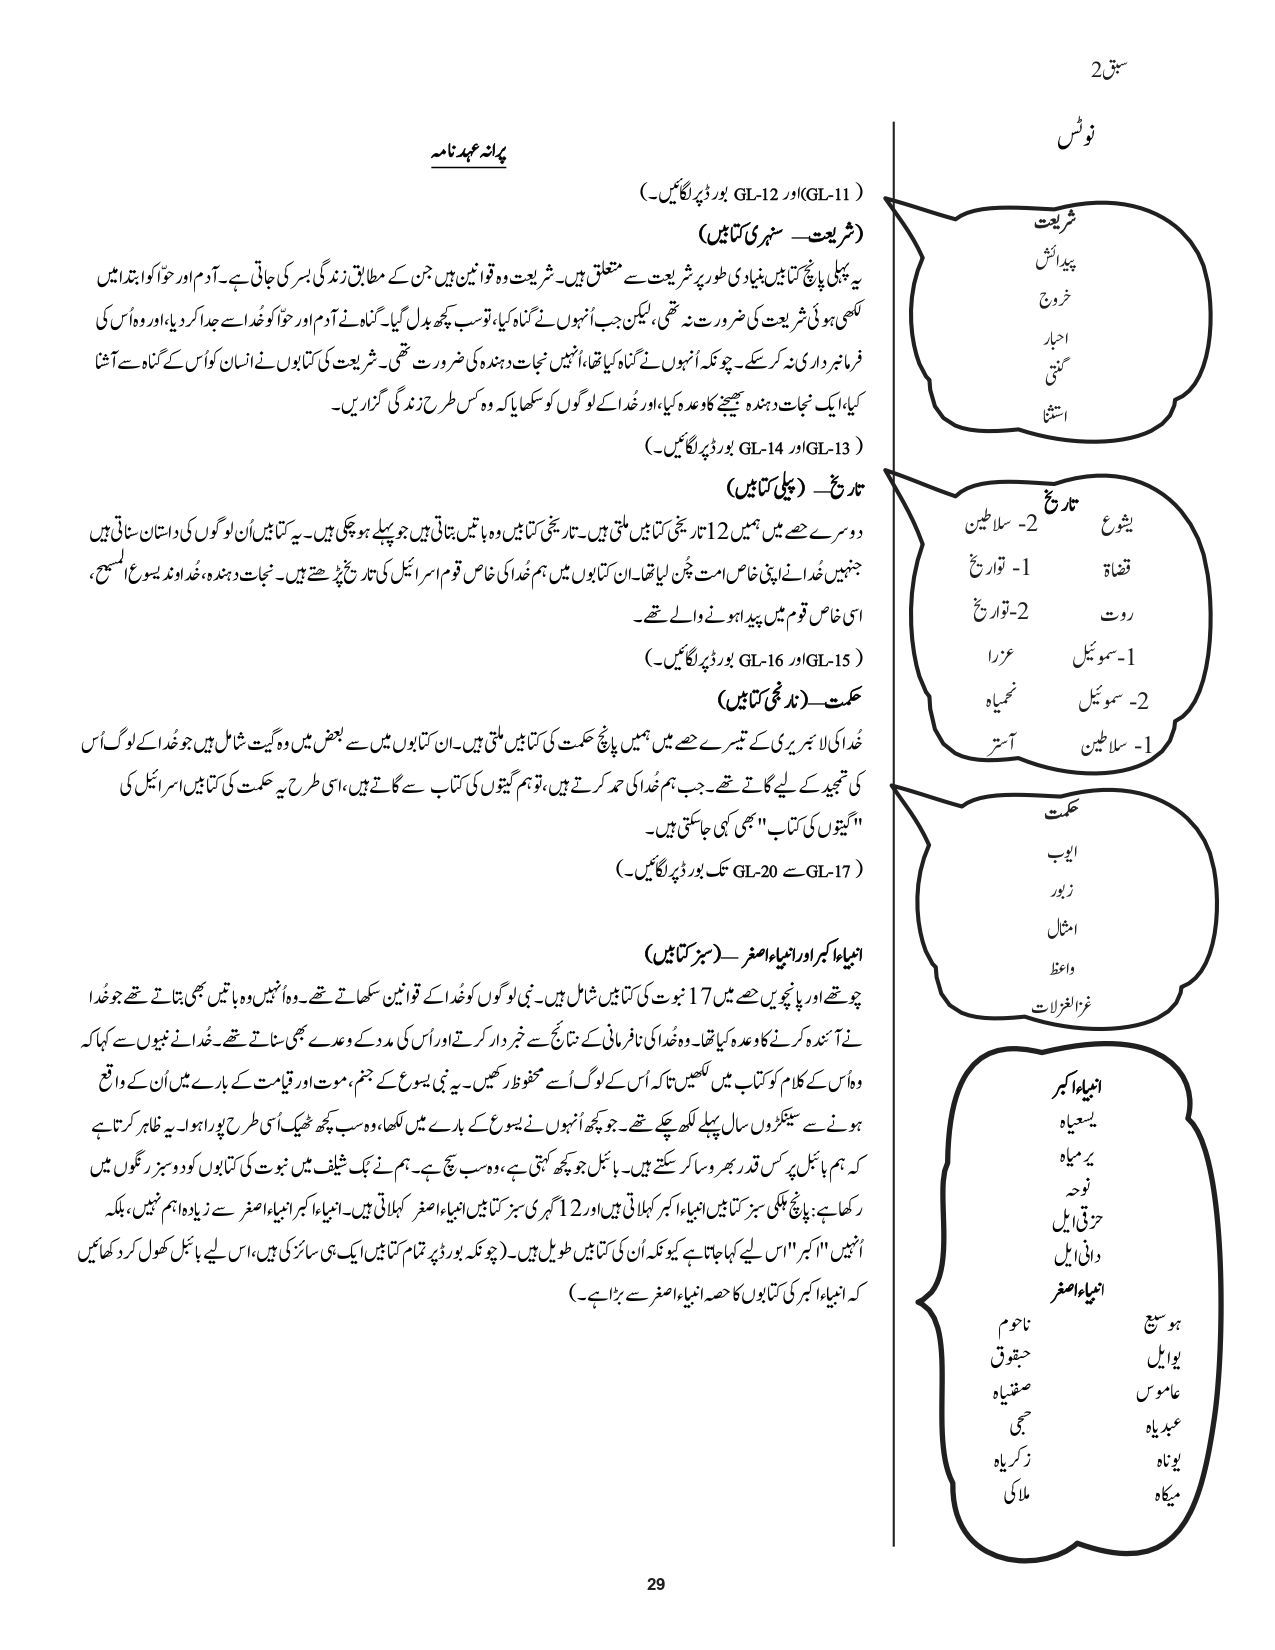 سبق2
نوٹس
شریعت
پیدائش
خروج
احبار
گنتی
استثنا
تاریخ
یشوع 2- سلاطین
قضاۃ 1- تواریخ
روت 2-تواریخ
1-سموئیل عزرا
2- سموئیل نحمیاہ
1- سلاطین آستر
حکمت
ایوب
زبور
امثال
واعظ
غزالغزلات
انبیاءاکبر
یسعیاہ
یرمیاہ
نوحہ
حزقی ایل
دانی ایل
انبیاءاصغر
ہوسیع ناحوم
یوایل حبقوق
عاموس صفنیاہ
عبدیاہ حجی
یوناہ زکریاہ
میکاہ ملاکی
پرانہ عہدنامہ
( GL-11)اور GL-12 بورڈ پر لگائیں۔)
(شریعت— سنہری کتابیں)
یہ پہلی پانچ کتابیں بنیادی طور پر شریعت سے متعلق ہیں۔ شریعت وہ قوانین ہیں جن کے مطابق زندگی بسر کی جاتی ہے۔ آدم اور حوّا کو ابتدا میں
لکھی ہوئی شریعت کی ضرورت نہ تھی، لیکن جب اُنہوں نے گناہ کیا، تو سب کچھ بدل گیا۔ گناہ نے آدم اور حوّا کو خُدا سے جدا کر دیا، اور وہ اُس کی
فرمانبرداری نہ کر سکے۔ چونکہ اُنہوں نے گناہ کیا تھا، اُنہیں نجات دہندہ کی ضرورت تھی۔ شریعت کی کتابوں نے انسان کو اُس کے گناہ سے آشنا
کیا، ایک نجات دہندہ بھیجنے کا وعدہ کیا، اور خُدا کے لوگوں کو سکھایا کہ وہ کس طرح زندگی گزاریں۔
( GL-13اور GL-14 بورڈ پر لگائیں۔)
تاریخ— (پیلی کتابیں)
دوسرے حصے میں ہمیں 12 تاریخی کتابیں ملتی ہیں۔ تاریخی کتابیں وہ باتیں بتاتی ہیں جو پہلے ہو چکی ہیں۔ یہ کتابیں اُن لوگوں کی داستان سناتی ہیں
جنہیں خُدا نے اپنی خاص امت چُن لیا تھا۔ ان کتابوں میں ہم خُدا کی خاص قوم اسرائیل کی تاریخ پڑھتے ہیں۔ نجات دہندہ، خُداوند یسوع المسیح،
اسی خاص قوم میں پیدا ہونے والے تھے۔
( GL-15اور GL-16 بورڈ پر لگائیں۔)
حکمت—(نارنجی کتابیں)
خُدا کی لائبریری کے تیسرے حصے میں ہمیں پانچ حکمت کی کتابیں ملتی ہیں۔ ان کتابوں میں سے بعض میں وہ گیت شامل ہیں جو خُدا کے لوگ اُس
کی تمجید کے لیے گاتے تھے۔ جب ہم خُدا کی حمد کرتے ہیں، تو ہم گیتوں کی کتاب سے گاتے ہیں، اسی طرح یہ حکمت کی کتابیں اسرائیل کی
"گیتوں کی کتاب" بھی کہی جا سکتی ہیں۔
( GL-17سے GL-20 تک بورڈ پر لگائیں۔)
انبیاءاکبر اور انبیاءاصغر —(سبز کتابیں)
چوتھے اور پانچویں حصے میں 17 نبوت کی کتابیں شامل ہیں۔ نبی لوگوں کو خُدا کے قوانین سکھاتے تھے۔ وہ اُنہیں وہ باتیں بھی بتاتے تھے جو خُدا
نے آئندہ کرنے کا وعدہ کیا تھا۔ وہ خُدا کی نافرمانی کے نتائج سے خبردار کرتے اور اُس کی مدد کے وعدے بھی سناتے تھے۔ خُدا نے نبیوں سے کہا کہ
وہ اُس کے کلام کو کتاب میں لکھیں تاکہ اُس کے لوگ اُسے محفوظ رکھیں۔ یہ نبی یسوع کے جنم، موت اور قیامت کے بارے میں اُن کے واقع
ہونے سے سینکڑوں سال پہلے لکھ چکے تھے۔ جو کچھ اُنہوں نے یسوع کے بارے میں لکھا، وہ سب کچھ ٹھیک اُسی طرح پورا ہوا۔ یہ ظاہر کرتا ہے
کہ ہم بائبل پر کس قدر بھروسا کر سکتے ہیں۔ بائبل جو کچھ کہتی ہے، وہ سب سچ ہے۔ ہم نے بُک شیلف میں نبوت کی کتابوں کو دو سبز رنگوں میں
رکھا ہے: پانچ ہلکی سبز کتابیں انبیاءاکبر کہلاتی ہیں اور 12 گہری سبز کتابیں انبیاءاصغر کہلاتی ہیں۔ انبیاءاکبر انبیاءاصغر سے زیادہ اہم نہیں، بلکہ
اُنہیں "اکبر" اس لیے کہا جاتا ہے کیونکہ اُن کی کتابیں طویل ہیں۔ (چونکہ بورڈ پر تمام کتابیں ایک ہی سائز کی ہیں، اس لیے بائبل کھول کر دکھائیں
کہ انبیاءاکبر کی کتابوں کا حصہ انبیاءاصغر سے بڑا ہے۔)
29